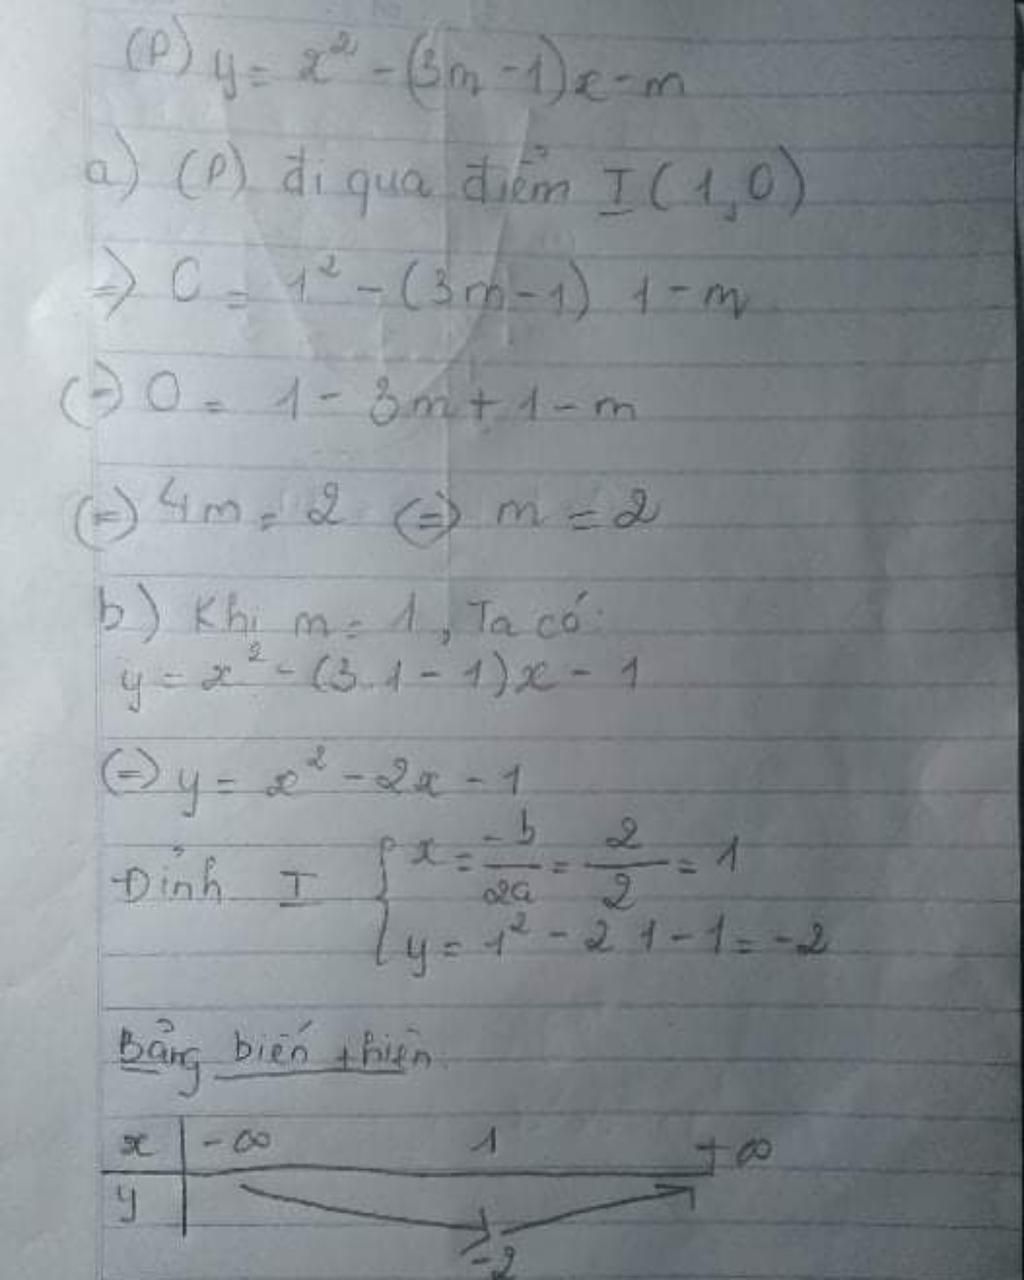 (P) y = x² - (3m - 1)x - m
a) (P) đi qua điểm I(1,0)
=> 0 = 1² - (3m - 1) 1 - m
(=) 0 = 1 - 3m + 1 - m
(=) 4m = 2 (=> m = 2
b) Khi m = 1, Ta có:
y = x² - (3.1 - 1)x - 1
(=) y = x² - 2x - 1
Đỉnh I { x = -b/2a = 2/2 = 1
y = 1² - 2 1 - 1 = -2
Bảng biến thiên
x | -∞ 1 +∞
y
-2